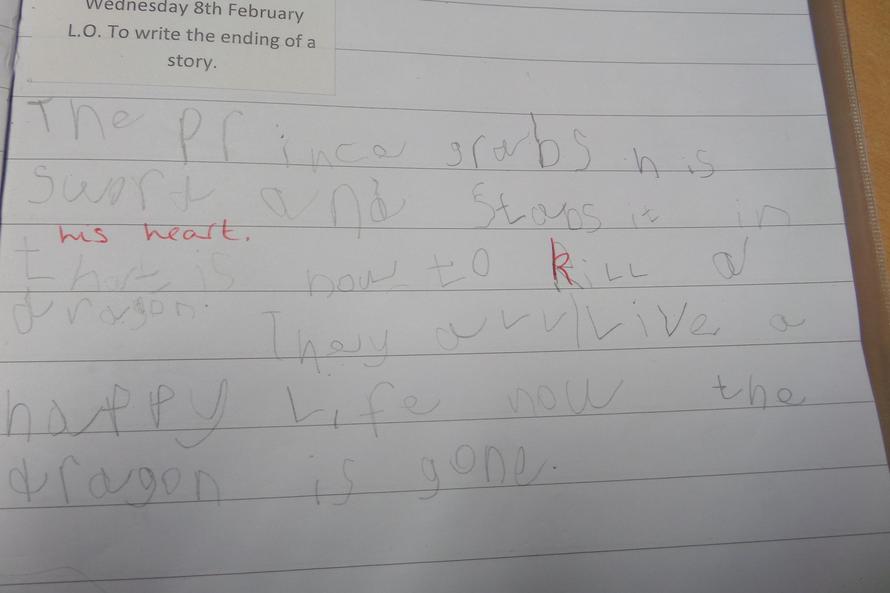 Wednesday 8th February
L.O. To write the ending of a
story.
The Prince grabs his
sword and stabs it in
his heart.
that is how to kill a
dragon. They all live a
happy Life now the
dragon is gone.